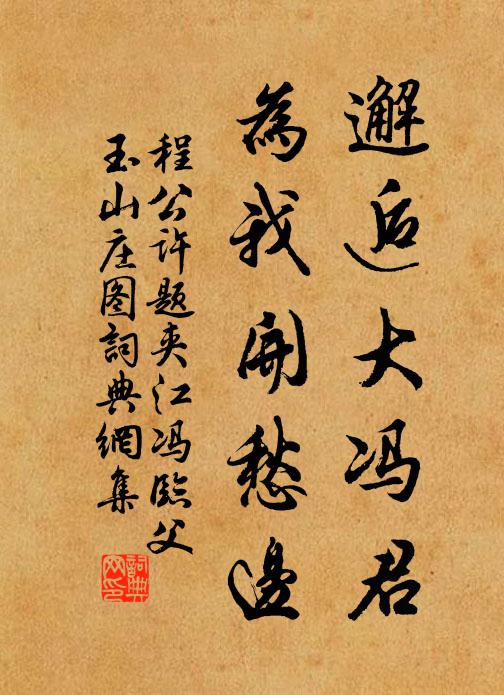 邂逅大冯君
為我開愁邊
程公许题夹江冯臨父
玉山庄图詞典網集
詞典网印